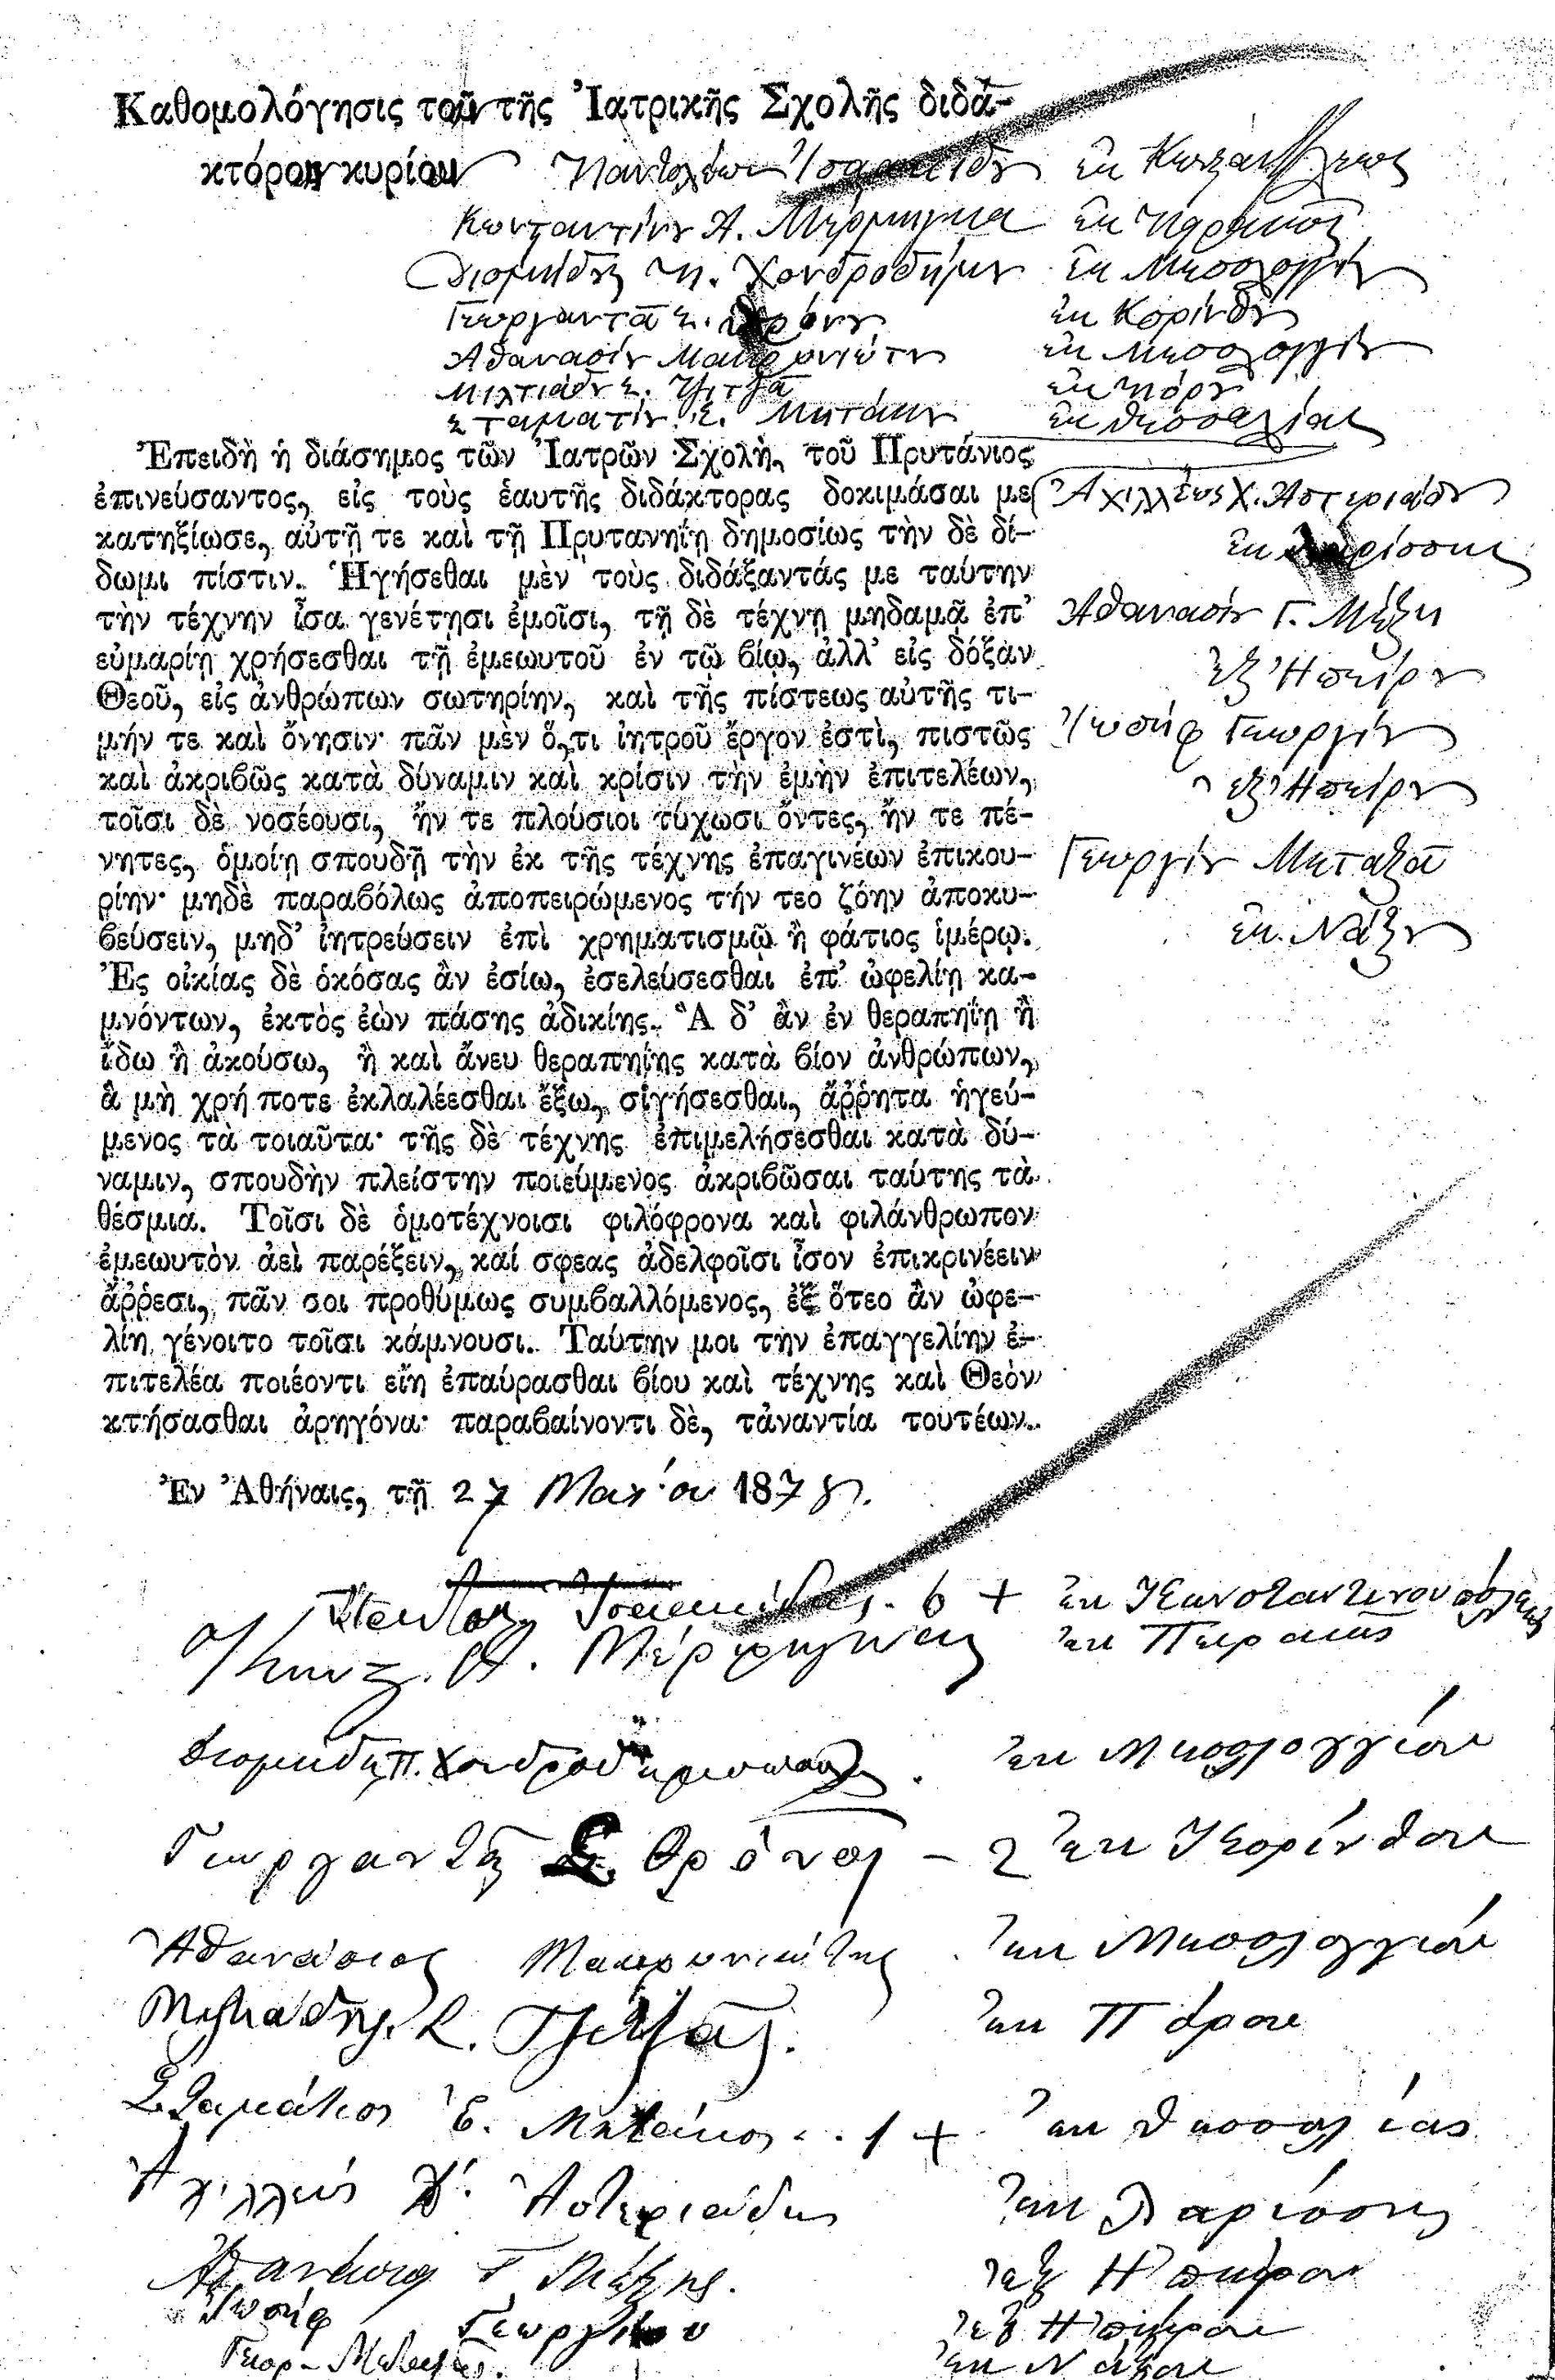 Καθομολόγησις τῶν τῆς Ἰατρικῆς Σχολῆς διδα-
κτόρων κυρίων Πανταλέων Ἰσα ἐκ Κωνσταντ/λεως
Κωνσταντίνου Α. Μέρμηγκα ἐκ Πειραιῶς
Διομήδους Π. Χονδροδήμου ἐκ Μεσολογγίου
Γεωργαντᾶ Σ. Θρόνου ἐκ Κορίνθου
Ἀθανασίου Μακρυνιώτου ἐκ Μεσολογγίου
Μιλτιάδου Σ. Τζιτζᾶ ἐκ Πόρου
Σταματίου Ε. Μητάκου ἐκ Θεσσαλίας
Ἀχιλλέως Χ. Ἀστεριάδου
ἐκ Λαρίσσης
Ἀθανασίου Γ. Μέξη
ἐξ Ἠπείρου
Ἰωσὴφ Γεωργίου
ἐξ Ἠπείρου
Γεωργίου Μεταξᾶ
ἐκ Νάξου
Ἐπειδὴ ἡ διάσημος τῶν Ἰατρῶν Σχολὴ, τοῦ Πρυτάνιος
ἐπινεύσαντος, εἰς τοὺς ἑαυτῆς διδάκτορας δοκιμάσαι με
κατηξίωσε, αὐτῇ τε καὶ τῇ Πρυτανηΐῃ δημοσίως τὴν δὲ δί-
δωμι πίστιν. Ἡγήσεθαι μὲν τοὺς διδάξαντάς με ταύτην
τὴν τέχνην ἶσα γενέτῃσι ἐμοῖσι, τῇ δὲ τέχνῃ μηδαμᾷ ἐπ’
εὐμαρίῃ χρήσεσθαι τῇ ἐμεωυτοῦ ἐν τῷ βίῳ, ἀλλ’ εἰς δόξαν
Θεοῦ, εἰς ἀνθρώπων σωτηρίην, καὶ τῆς πίστεως αὐτῆς τι-
μήν τε καὶ ὄνησιν· πᾶν μὲν ὅ,τι ἰητροῦ ἔργον ἐστὶ, πιστῶς
καὶ ἀκριβῶς κατὰ δύναμιν καὶ κρίσιν τὴν ἐμὴν ἐπιτελέων,
τοῖσι δὲ νοσέουσι, ἤν τε πλούσιοι τύχωσι ὄντες, ἤν τε πέ-
νητες, ὁμοίῃ σπουδῇ τὴν ἐκ τῆς τέχνης ἐπαγινέων ἐπικου-
ρίην· μηδὲ παραβόλως ἀποπειρώμενος τήν τεο ζόην ἀποκυ-
βεύσειν, μηδ’ ἰητρεύσειν ἐπὶ χρηματισμῷ ἢ φάτιος ἱμέρῳ.
Ἐς οἰκίας δὲ ὁκόσας ἂν ἐσίω, ἐσελεύσεσθαι ἐπ’ ὠφελίῃ κα-
μνόντων, ἐκτὸς ἐὼν πάσης ἀδικίης. Ἃ δ’ ἂν ἐν θεραπηΐῃ ἢ
ἴδω ἢ ἀκούσω, ἢ καὶ ἄνευ θεραπηΐης κατὰ βίον ἀνθρώπων,
ἃ μὴ χρή ποτε ἐκλαλέεσθαι ἔξω, σιγήσεσθαι, ἄῤῥητα ἡγεύ-
μενος τὰ τοιαῦτα· τῆς δὲ τέχνης ἐπιμελήσεσθαι κατὰ δύ-
ναμιν, σπουδὴν πλείστην ποιεύμενος ἀκριβῶσαι ταύτης τὰ
θέσμια. Τοῖσι δὲ ὁμοτέχνοισι φιλόφρονα καὶ φιλάνθρωπον
ἐμεωυτὸν ἀεὶ παρέξειν, καί σφεας ἀδελφοῖσι ἶσον ἐπικρινέειν
ἄῤῥεσι, πᾶν σοι προθύμως συμβαλλόμενος, ἐξ ὅτεο ἂν ὠφε-
λίη γένοιτο τοῖσι κάμνουσι. Ταύτην μοι τὴν ἐπαγγελίην ἐ-
πιτελέα ποιέοντι εἴη ἐπαύρασθαι βίου καὶ τέχνης καὶ Θεὸν
κτήσασθαι ἀρηγόνα· παραβαίνοντι δὲ, τἀναντία τουτέων.
Ἐν Ἀθήναις, τῇ 27 Μαΐου 187
6 + ἐκ Κωνσταντινουπόλεως
Κωνσ. Α. Μέρμηγκας ἐκ Πειραιῶς
Διομήδης Π. Χονδροδημόπουλος. ἐκ Μεσολογγίου
Γεωργαντᾶς Σ. Θρόνος – 2 ἐκ Κορίνθου
Ἀθανάσιος Μακρυνιώτης ἐκ Μεσολογγίου
Μιλτιάδης Σ. Τζιτζᾶς. ἐκ Πόρου
Σταμάτιος Ε. Μητάκος . . 1 + ἐκ Θεσσαλίας
Ἀχιλλεύς Χ. Ἀστεριάδης ἐκ Λαρίσσης
Ἀθανάσιος Γ. Μέξης. ἐξ Ἠπείρου
Ἰωσήφ Γεωργίου ἐξ Ἠπείρου
Γεωρ. Μεταξᾶς. ἐκ Νάξου